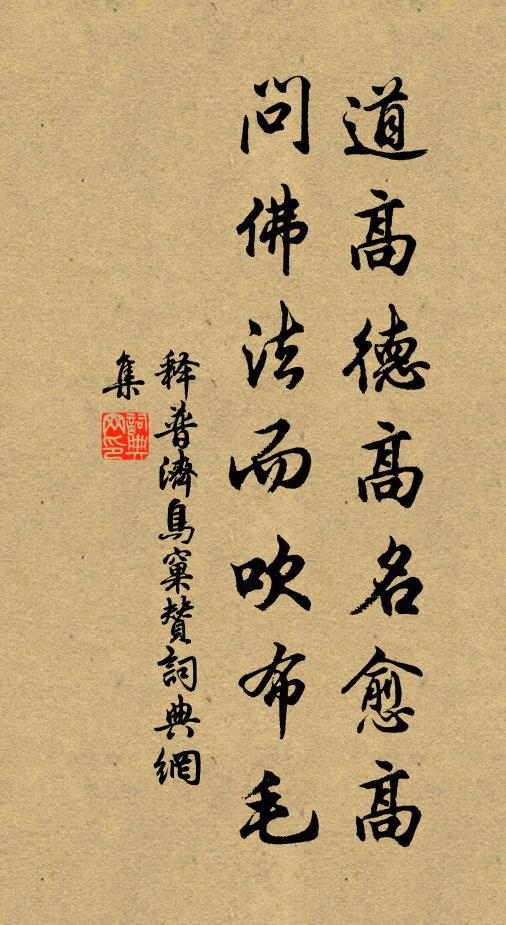 道高德高名愈高
問佛法而吹布毛
釋普濟鳥窠贊詞典網
集
詞典網印